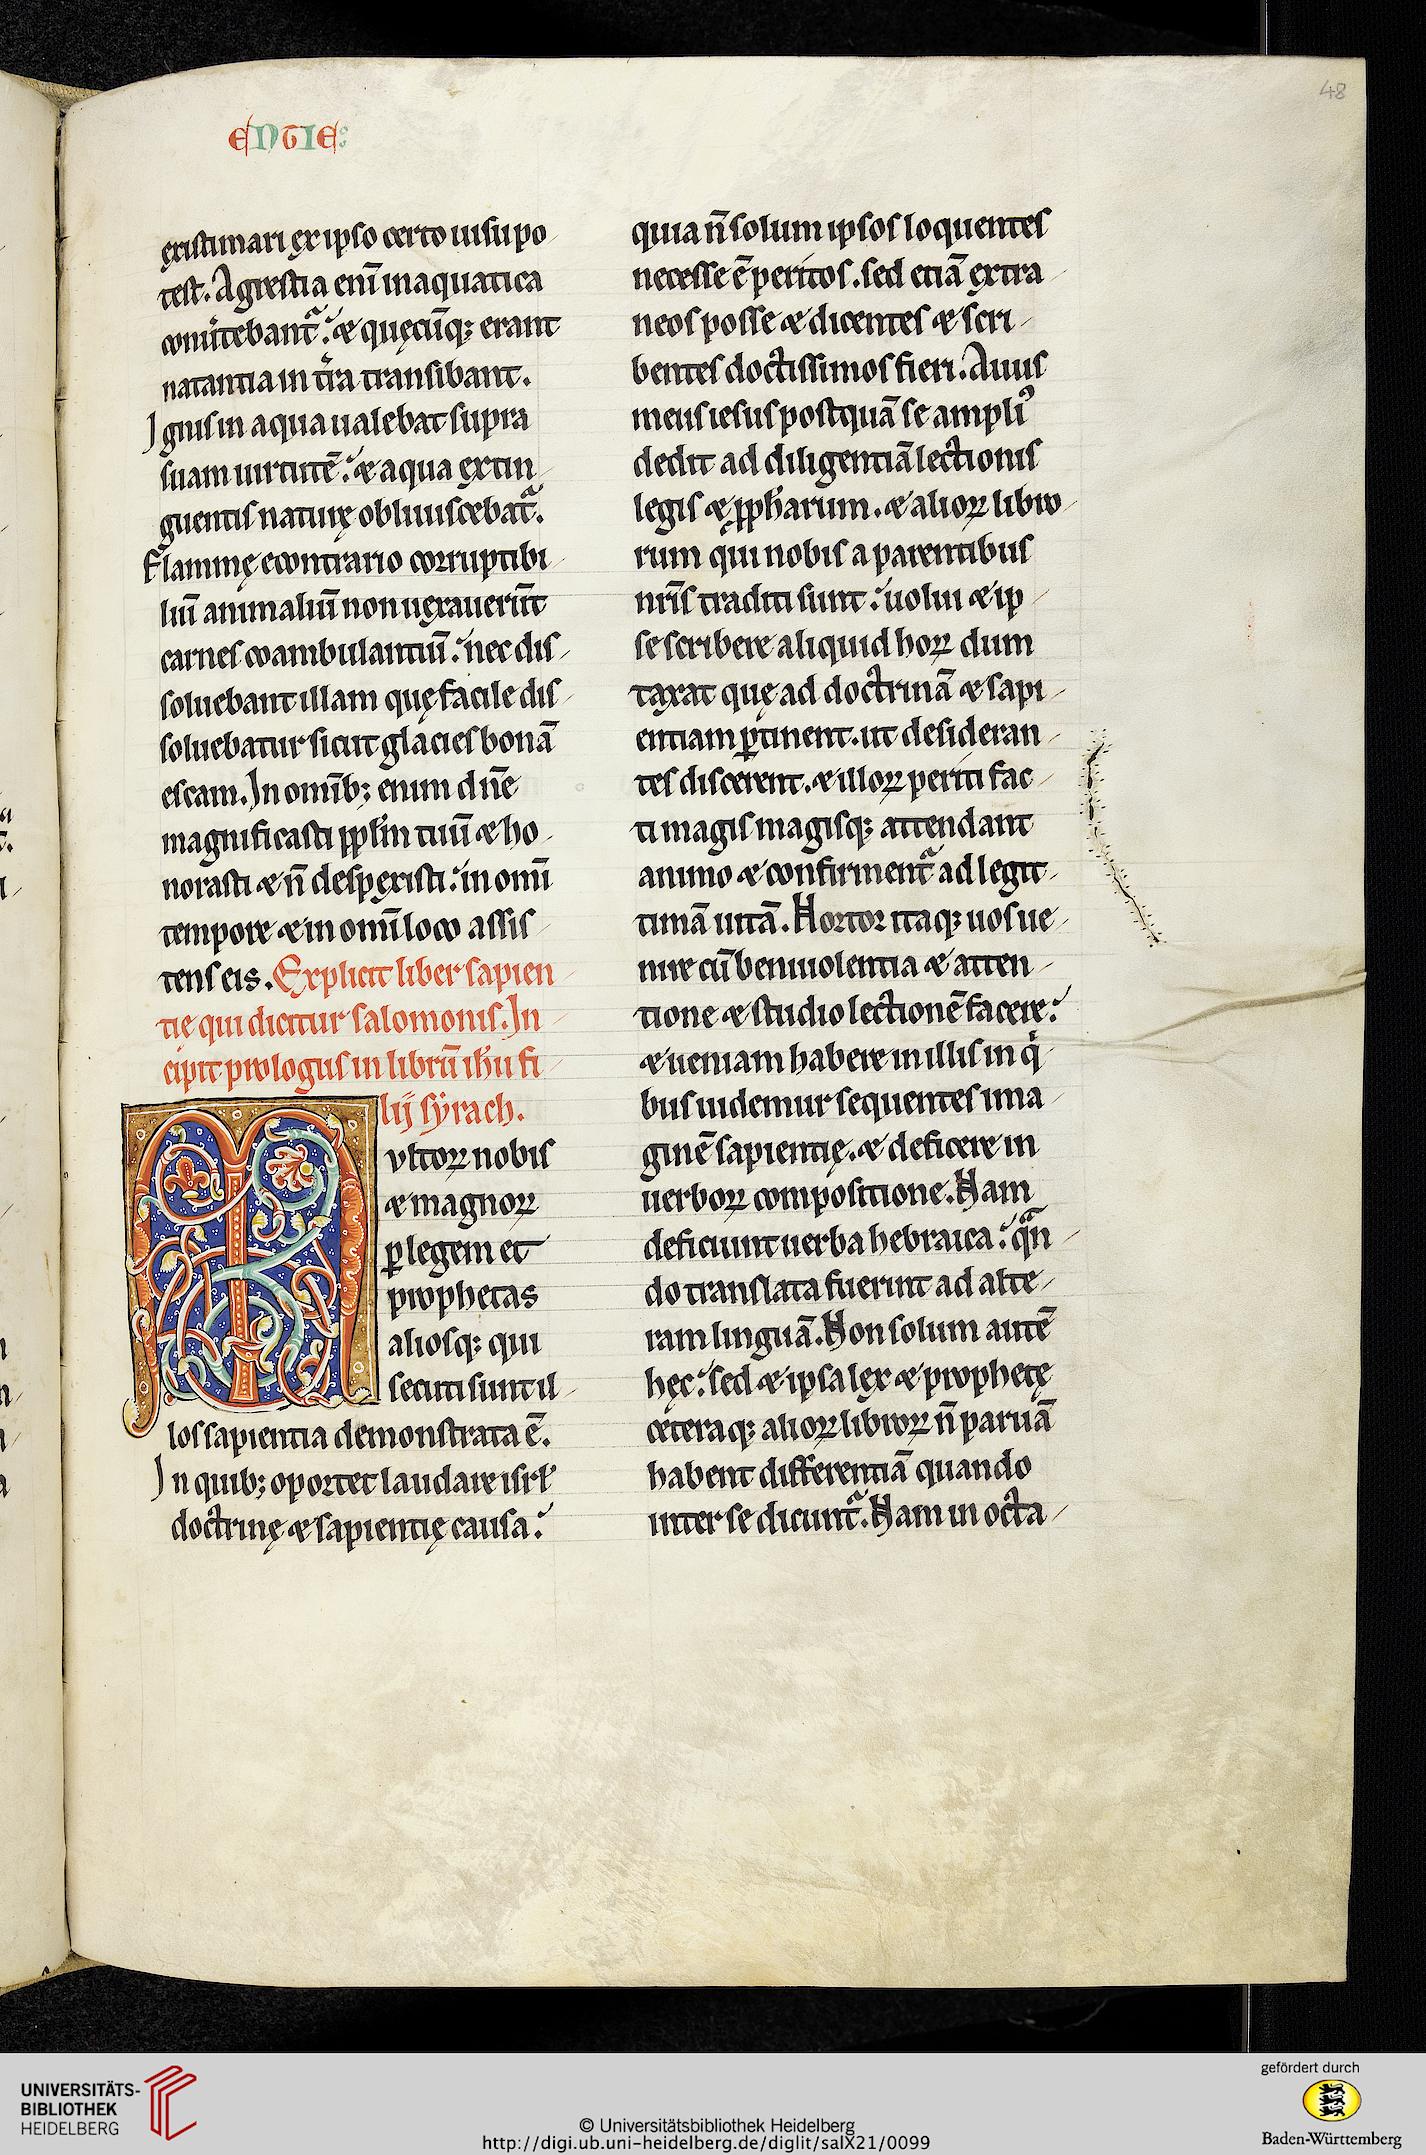 48
ENTIE:
ęxistimari ęx ipso certo uisu po
test. Agrestia enī in aquatica
conūtebantᷓ. & quęcūq; erant
natantia in tr̄a transibant.
Ignis in aqua ualebat supra
suam uirtutē. & aqua ęxtin
guentis naturę obliuiscebatᷓ.
Flammę econtrario corruptibi
liū animaliū non uęxauerūt
carnes coambulantiū. nec dis
soluebant illam quę facile dis
soluebatur sicut glacies bonā
escam. In omīb; enim dn̄e
magnificasti ppl̄m tuū & ho
norasti & n̄ despęxisti. in omī
tempore & in omī loco assis
tens eis. Explicit liber sapien
tie qui dicitur salomonis. In
cipit prologus in librū ih̄u fi
lij sẏrach.
Mvltoꝝ nobis
& magnoꝝ
ꝑ legem et
prophetas
aliosq; qui
secuti sunt il
los sapientia demonstrata ē.
In quib; oportet laudare isrl̄
doctrinę & sapientię causa.
quia n̄ solum ipsos loquentes
necesse ē peritos. sed etiā ęxtra
neos posse & dicentes & scri
bentes doctissimos fieri. Auus
meus iesus postquā se ampliꝰ
dedit ad diligentiā lectionis
legis & pph̄arum. & alioꝝ libro
rum qui nobis a parentibus
nrīs traditi sunt. uoluı & ip
se scribere aliquid hoꝝ dum
taxat quę ad doctrinā & sapi
entiam ꝑtinent. ut desideran
tes discerent. & illoꝝ periti fac
ti magis magisq; attendant
animo & confirmentᷓ ad legit
timā uitā. Hortor itaq; uos ue
nire cū beniuolentia & atten
tione & studio lectionē facere.
& ueniam habere in illis in qͥ
bus uidemur sequentes ima
ginē sapientię. & deficere in
uerboꝝ compositione. Nam
deficiunt uerba hebraica. qᷓn
do translata fuerint ad alte
ram linguā. Non solum autē
hęc. sed & ipsa lęx & prophetę
ceteraq; alioꝝ libroꝝ n̄ paruā
habent differentiā quando
inter se dicuntᷓ. Nam in octa
UNIVERSITÄTS-
BIBLIOTHEK
HEIDELBERG
© Universitätsbibliothek Heidelberg
http://digi.ub.uni-heidelberg.de/diglit/salX21/0099
gefördert durch
Baden-Württemberg